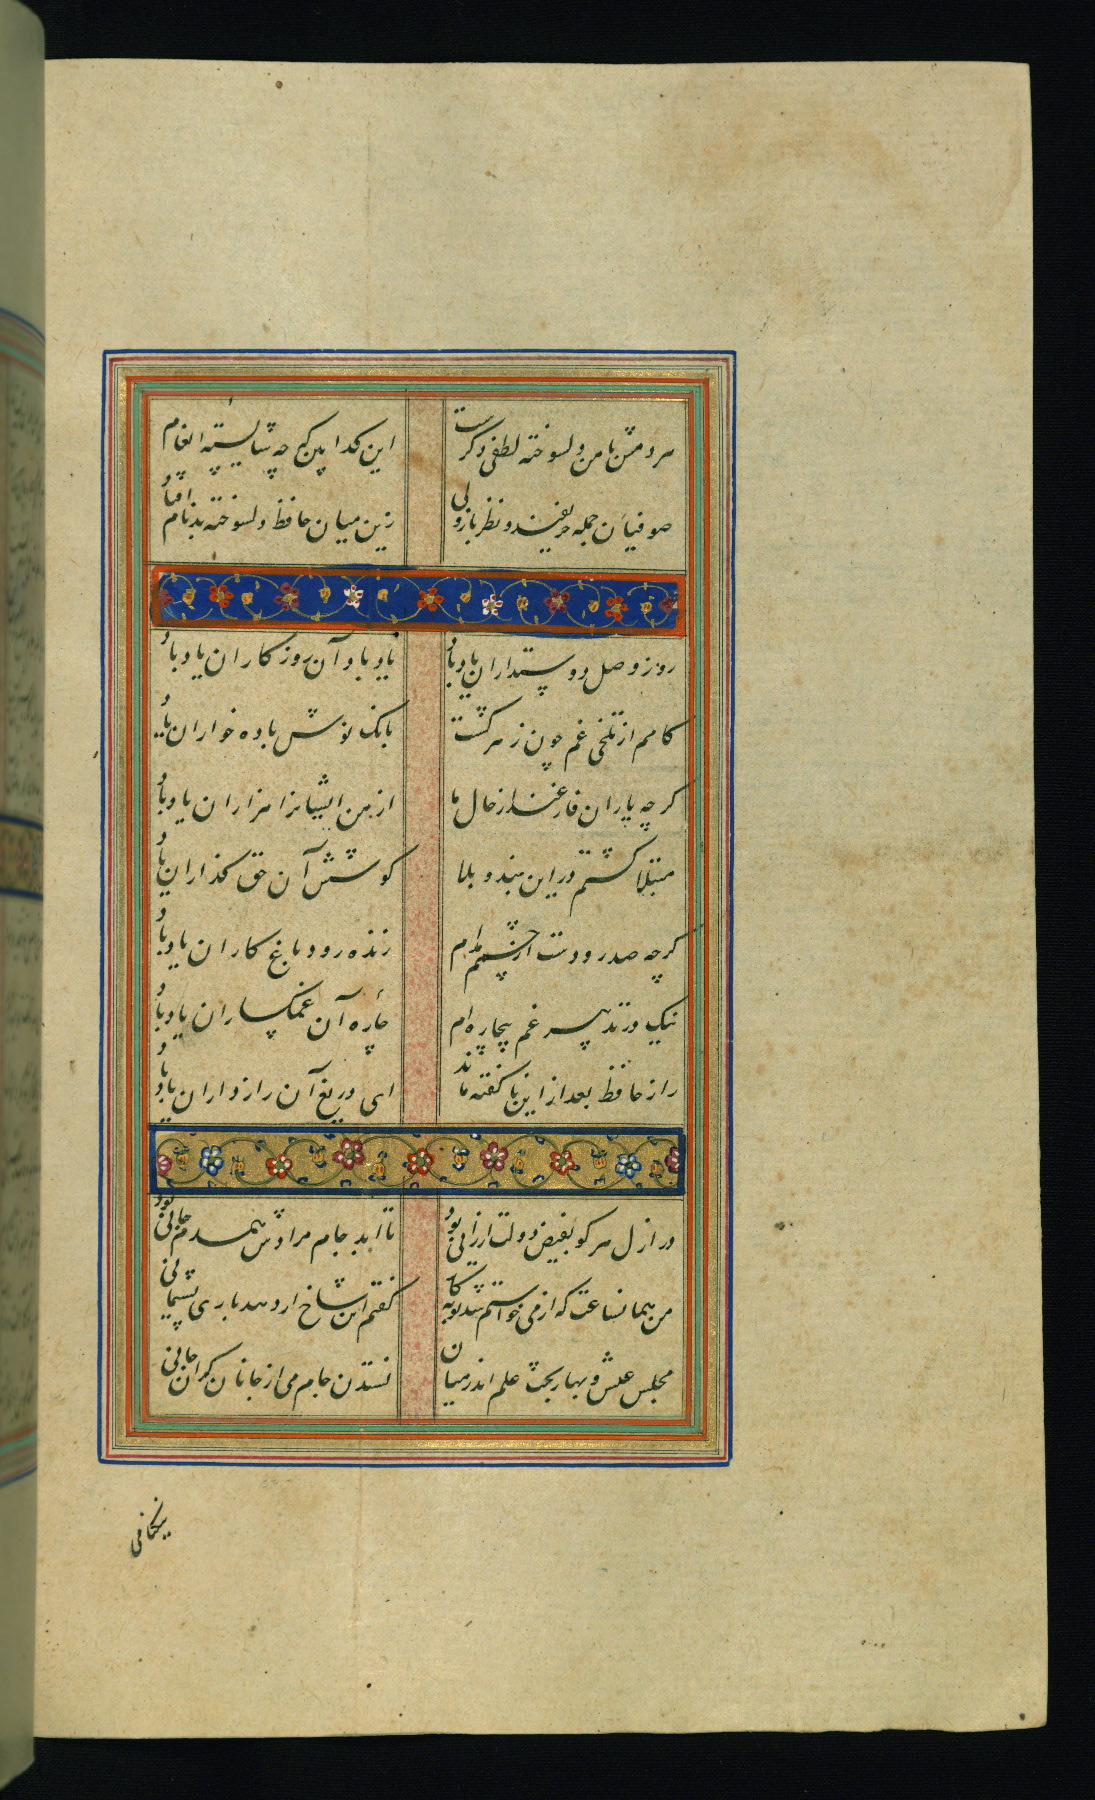 هر دمش با من دلسوخته لطفی دکرست
این کدا بین که چه شایسته انعام افتاد
صوفیان جمله حریفند و نظر باز ولی
زین میان حافظ دلسوخته بدنام افتاد
روز وصل دوستداران یاد باد
یاد باد آن روزکاران یاد باد
کامم از تلخی غم چون زهر کشت
بانک نوش باده خواران یاد باد
کرچه یاران فارغند از حال ما
از من ایشانرا هزاران یاد باد
مبتلا کشتم درین بند و بلا
کوشش آن حق کذاران یاد باد
کرچه صد رودست از چشمم مدام
زنده رود باغ کاران یاد باد
نیک در تدبیر غم بیچاره ام
چاره آن غمکساران یاد باد
راز حافظ بعد ازین ناکفته ماند
ای دریغ آن رازداران یاد باد
در ازل هر کو بفیض دولت ارزانی بود
تا ابد جام مرادش همدم جانی بود
من همانساعت که از می خواستم شد توبه کار
کفتم این شاخ ار دهد باری پشیمانی
مجلس عیش و بهار بحث علم اندر میان
نستدن جام می از جانان کران جانی